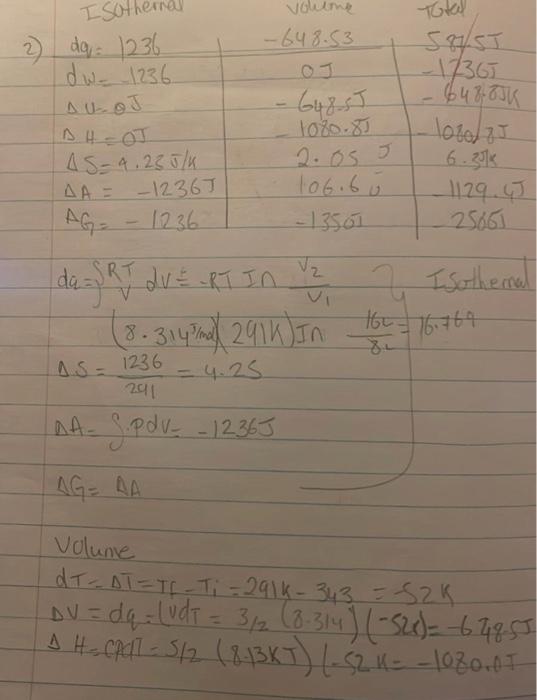 Isothermal volume Total
2) dq = 1236 -648.53 587.5J
dw = -1236 0J -1236J
ΔU = 0J -648.5J -648.8JK
ΔH = 0J -1080.8J -1080.8J
ΔS = 4.25 J/K 2.05 J 6.3J/K
ΔA = -1236J 106.6J -1129.4J
ΔG = -1236 -1350J -2566J
dq = ∫RT/V dV = -RT In V2/V1 Isothermal
(8.314 J/mol)(291K) In 16L/8L = 16.769
ΔS = 1236/291 = 4.25
ΔA = ∫.pdv = -1236J
ΔG = ΔA
Volume
dT = ΔT = Tf - Ti = 291K - 343 = -52K
ΔV = dq = CvdT = 3/2 (8.314)(-52K) = -648.5J
ΔH = CpdT = 5/2 (8.13KJ)(-52K = -1080.0J